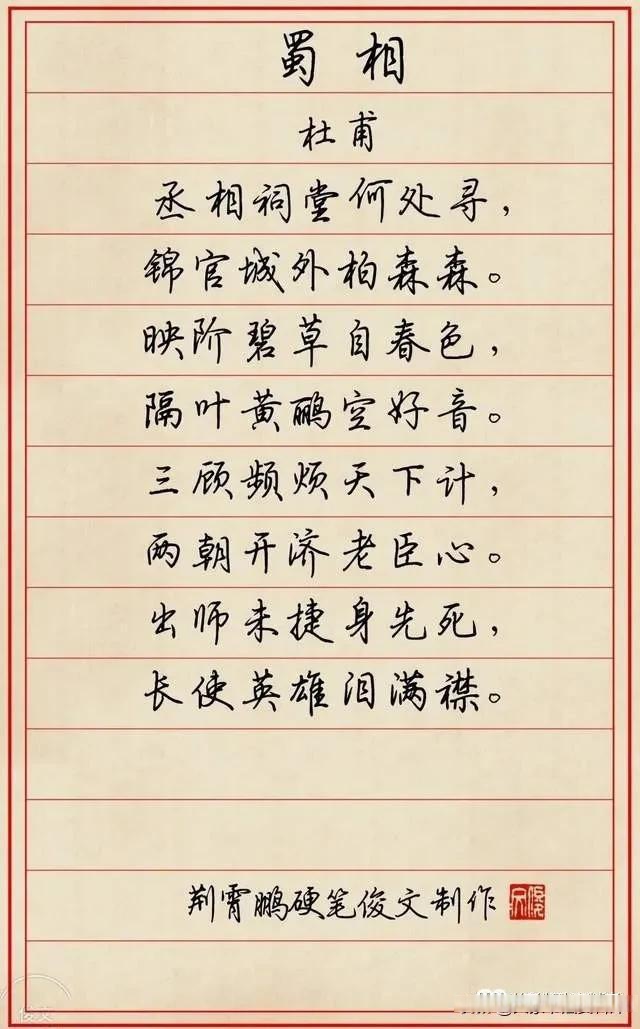 蜀相
杜甫
丞相祠堂何处寻，
锦官城外柏森森。
映阶碧草自春色，
隔叶黄鹂空好音。
三顾频烦天下计，
两朝开济老臣心。
出师未捷身先死，
长使英雄泪满襟。
荆霄鹏硬笔俊文制作
俊文